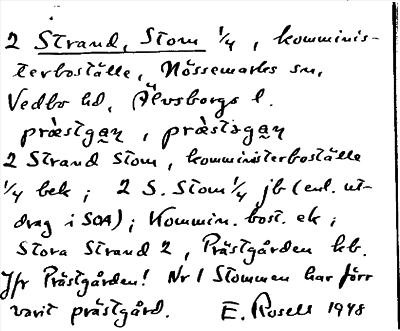 2 Strand, Stom 1/4, komminis-
terboställe, Nössemarks sn,
Vedbo hd, Älvsborgs l.
præ̀stgan̥, præ̀stsgan̥
2 Strand Stom, komministerboställe
1/4 bek; 2 S. Stom 1/4 jb (enl. ut-
drag i SOA); Kommin. bost. ek;
Stora Strand 2, Prästgården kb.
Jfr Prästgården! Nr 1 Stommen har förr
varit prästgård. E. Rosell 1948